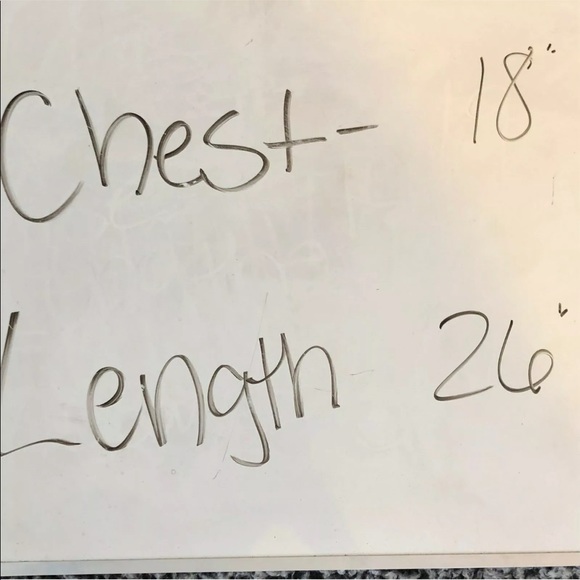 Chest- 18"
Length 26"